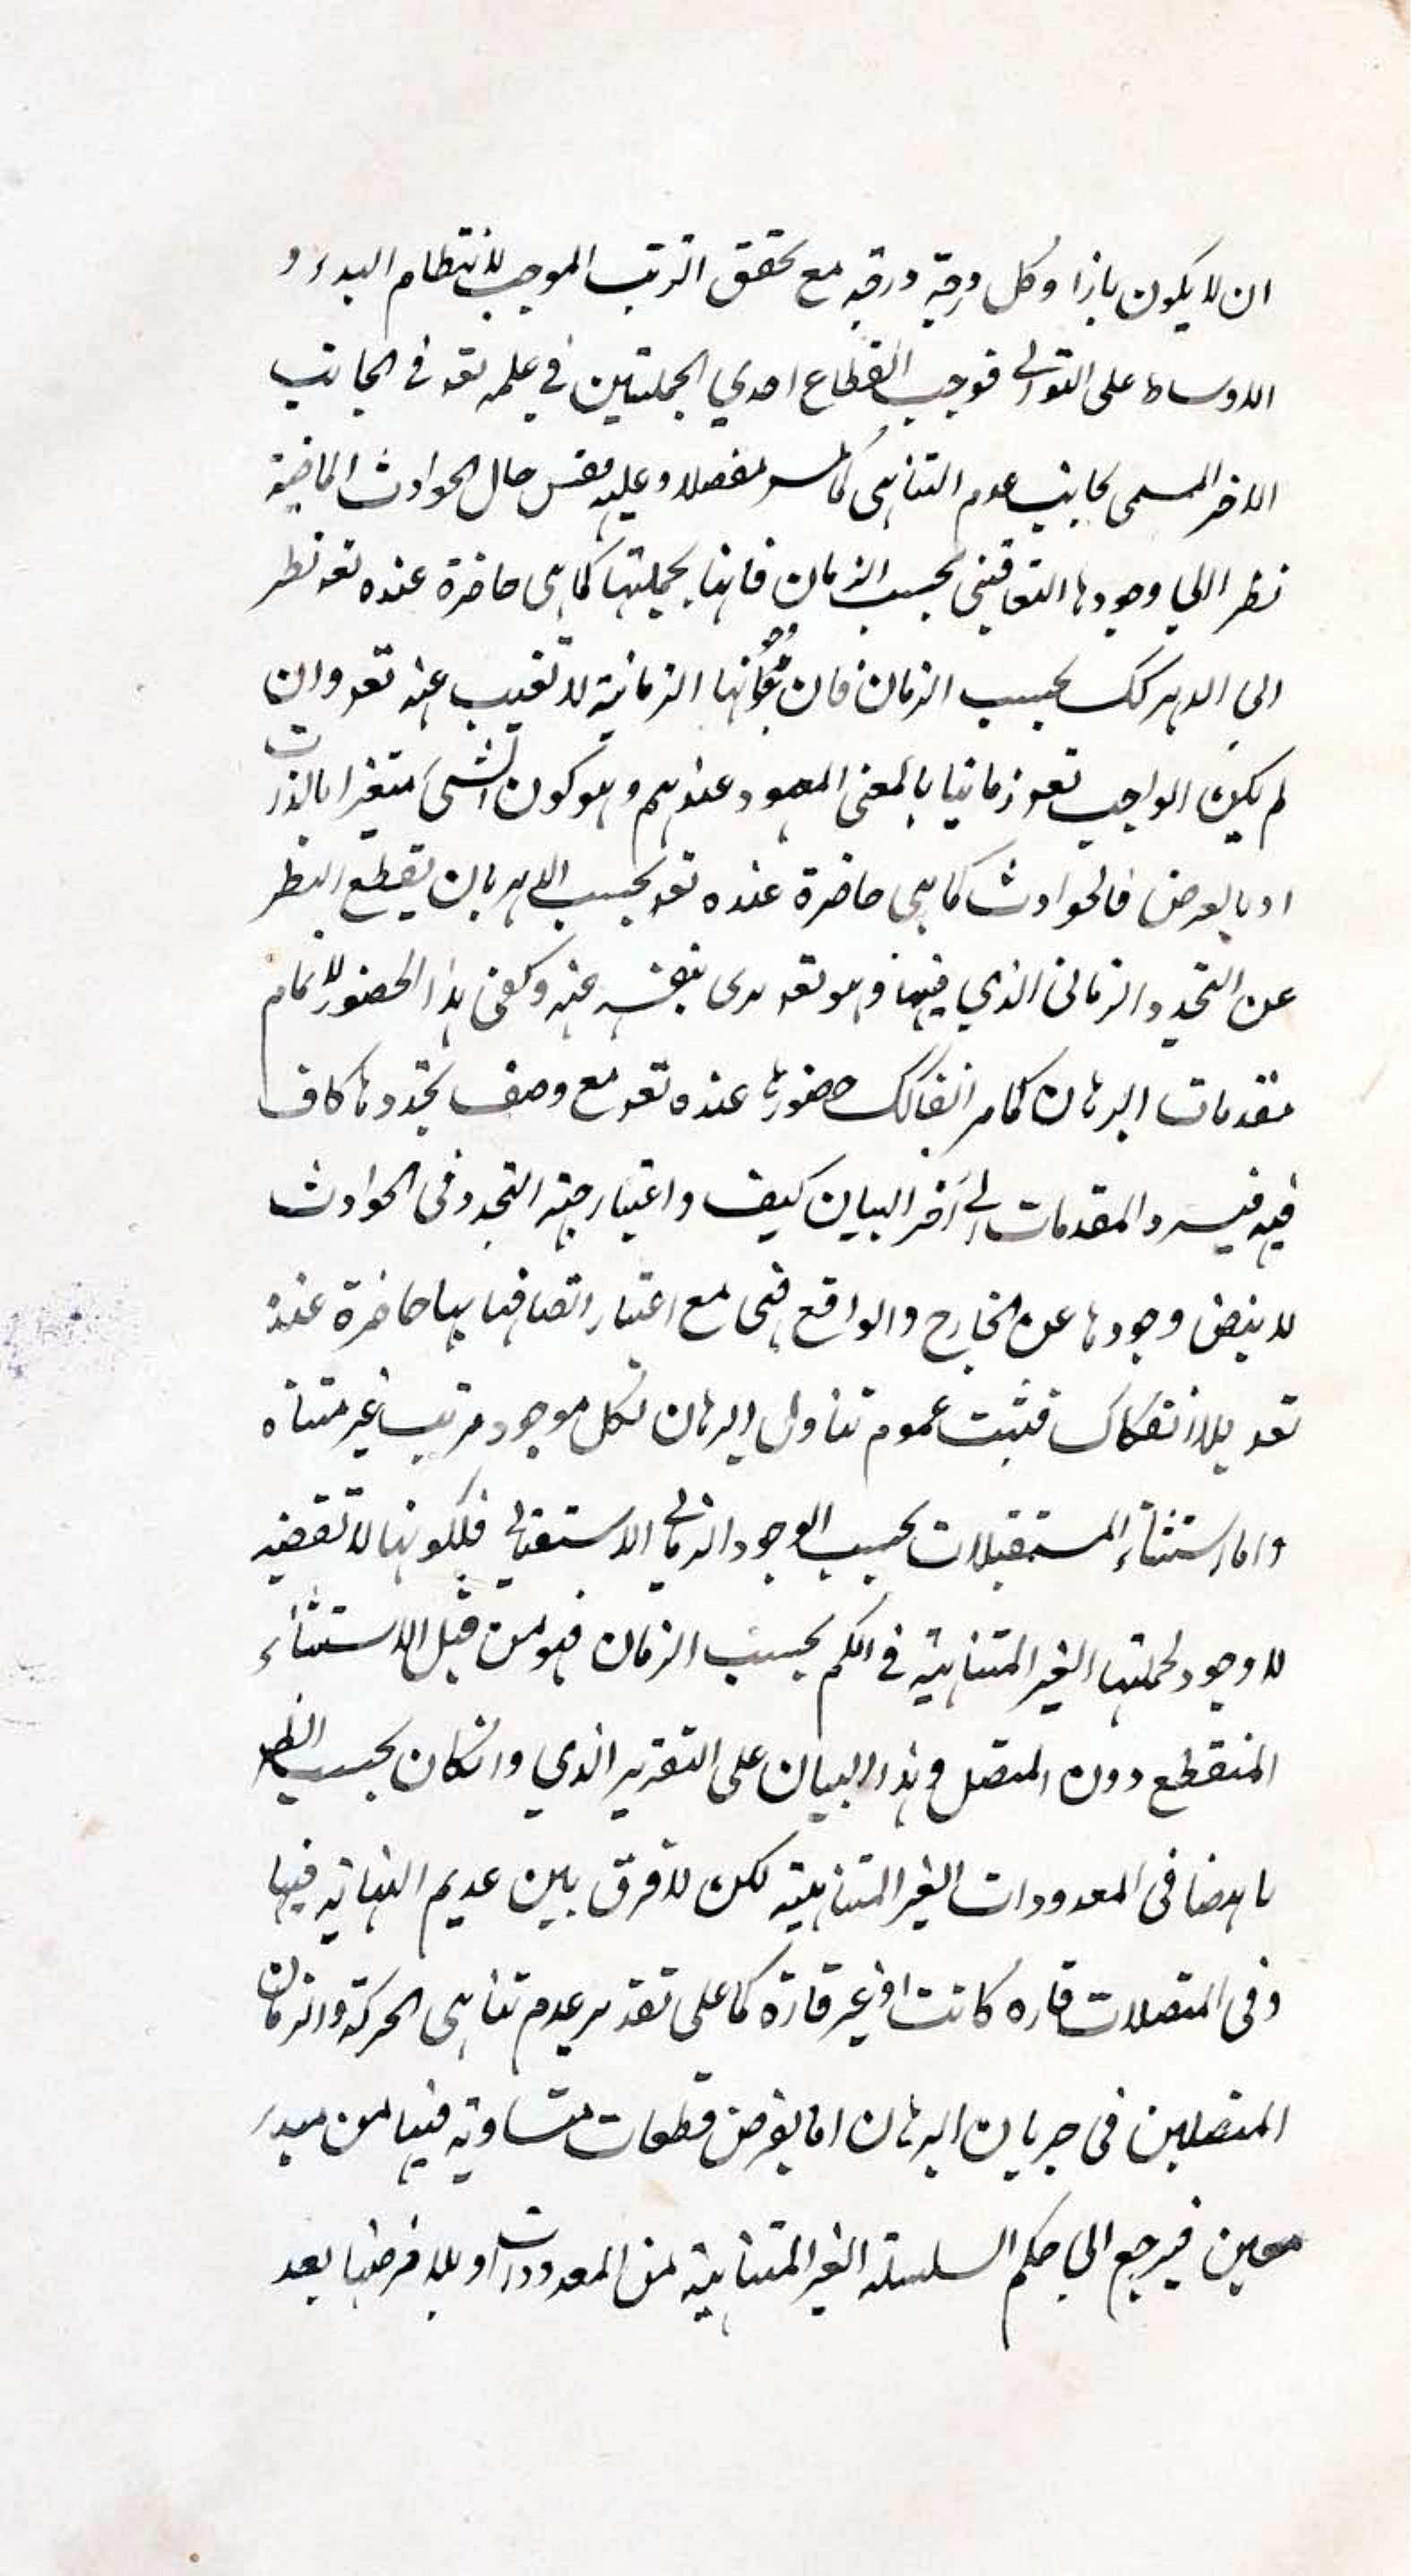 ان لا يكون بازاء كل درقة درقة مع تحقق الترتب الموجب لانتظام البدء و
الاوساط على التوالي فوجب انقطاع احدي الجملتين في علمه تعه في الجانب
الاخر المسمى بجانب عدم التناهى كما مر مفصلا وعليه فقس حال الحوادث الماضية
نظرا الي وجودها التعاقبي بحسب الزمان فانها بجملتها كما هى حاضرة عنده تعه نظر
الى الدهر كك بحسب الزمان فان الزمانية لا تغيب عنه تعه وان
لم يكن الواجب تعه زمانيا بالمعنى المعهود عندهم وهو كون الشئ متغيرا بالذات
او بالعرض فالحوادث كما هى حاضرة عنده تعه بحسب الدهر بان يقطع النظر
عن التجدد الزمانى الذي فيها وهو تعه برى بنفسه عنه وكفى هذا الحضور لاتمام
مقدمات البرهان كما مر انفا كك حضورها عنده تعه مع وصف تجددها كاف
فيه فيسرد المقدمات الى آخر البيان كيف واعتبار جهة التجدد فى الحوادث
لا ينفى وجودها عن الخارج والواقع فهى مع اعتبار اتصافها بها حاضرة عنده
تعه بلا انفكاك فثبت عموم تناول البرهان لكل موجود مرتب غير متناه
واما استثناء المستقبلات بحسب الوجود الزماني الاستقبالي فلكونها لا تقضيه
لا وجود لجملتها الغير المتناهية في الكم بحسب الزمان فهو من قبل الاستثناء
المنقطع دون المتصل وهذا البيان على التقرير الذي وان كان بحسب الظهر
ناهضا فى المعدودات الغير المتناهية لكن لا فرق بين عديم النهاية فيها
وفى المتصلات قاره كانت او غير قارة كما على تقدير عدم تناهى الحركة والزمان
المتصلين فى جريان البرهان اما بفرض قطعات متساوية فيها من مبدء
معين فيرجع الي حكم السلسلة الغير المتناهية من المعدودات او بلا فرضها بعد